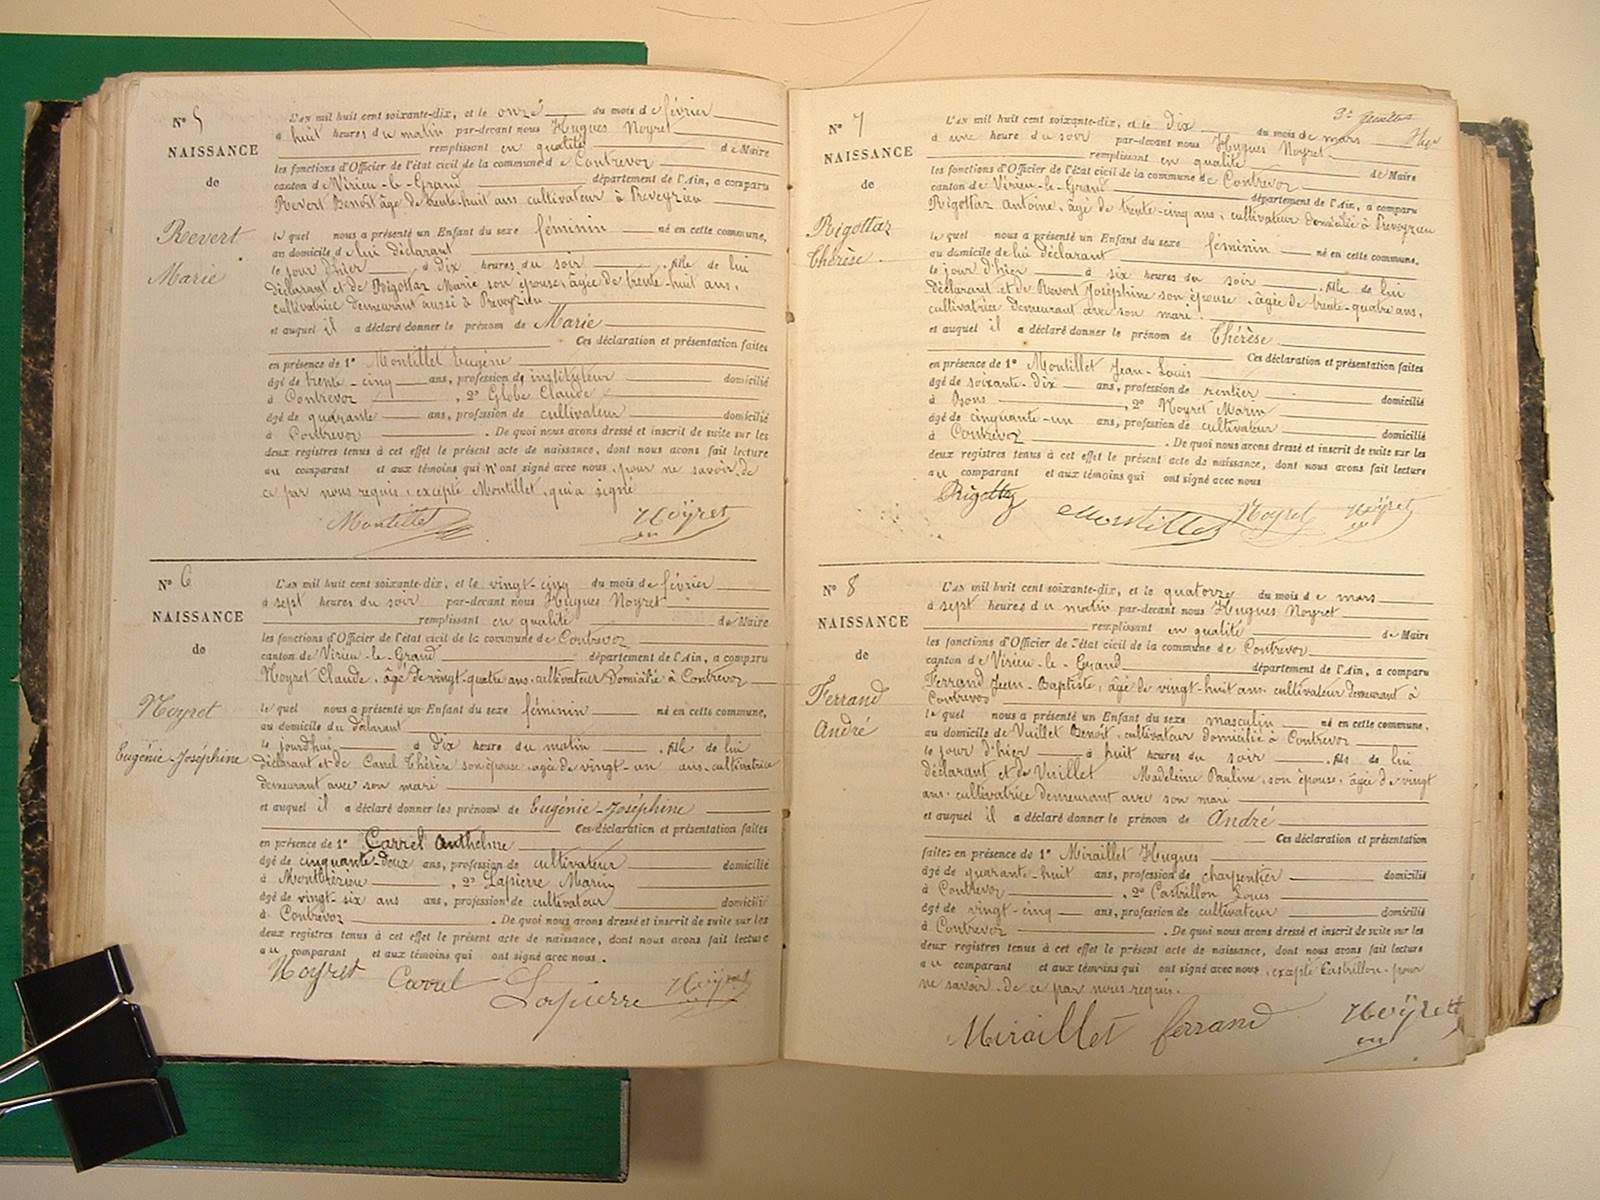 N° 5
NAISSANCE
de
Revert
Marie
L'AN mil huit cent soixante-dix, et le onze du mois de février
à huit heures du matin par-devant nous Hugues Noyret
remplissant en qualité de Maire
les fonctions d'Officier de l'état civil de la commune de Contrevoz
canton de Virieu-le-Grand département de l'Ain, a comparu
Revert Benoit âgé de trente-huit ans cultivateur à Preveyzieu
le quel nous a présenté un Enfant du sexe féminin né en cette commune,
au domicile de lui déclarant
le jour d'hier à dix heures du soir fille de lui
déclarant et de Rigottaz Marie son épouse, âgée de trente-huit ans,
cultivatrice demeurant aussi à Preveyzieu
et auquel il a déclaré donner le prénom de Marie
Ces déclaration et présentation faites
en présence de 1° Montillet Eugène
âgé de trente-cinq ans, profession de instituteur domicilié
à Contrevoz, 2° Globe Claude
âgé de quarante ans, profession de cultivateur domicilié
à Contrevoz. De quoi nous avons dressé et inscrit de suite sur les
deux registres tenus à cet effet le présent acte de naissance, dont nous avons fait lecture
au comparant et aux témoins qui n'ont signé avec nous, pour ne savoir de
ce par nous requis, excepté Montillet, qui a signé
Montillet Noyret
N° 6
NAISSANCE
de
Noyret
Eugénie-Joséphine
L'AN mil huit cent soixante-dix, et le vingt-cinq du mois de février
à sept heures du soir par-devant nous Hugues Noyret
remplissant en qualité de Maire
les fonctions d'Officier de l'état civil de la commune de Contrevoz
canton de Virieu-le-Grand département de l'Ain, a comparu
Noyret Claude, âgé de vingt-quatre ans, cultivateur domicilié à Contrevoz
le quel nous a présenté un Enfant du sexe féminin né en cette commune,
au domicile du déclarant
le jourdhui à dix heure du matin fille de lui
déclarant et de Carrel Thérèse son épouse, agée de vingt-un ans, cultivatrice
demeurant avec son mari
et auquel il a déclaré donner les prénoms de Eugénie-Joséphine
Ces déclaration et présentation faites
en présence de 1° Carrel Anthelme
âgé de cinquante-deux ans, profession de cultivateur domicilié
à Montbrézieu, 2° Lapierre Marin
âgé de vingt-six ans ans, profession de cultivateur domicilié
à Contrevoz. De quoi nous avons dressé et inscrit de suite sur les
deux registres tenus à cet effet le présent acte de naissance, dont nous avons fait lecture
au comparant et aux témoins qui ont signé avec nous.
Noyret Carrel Lapierre Noyret
3e feuillet
N° 7
NAISSANCE
de
Rigottaz
Thérèse
L'AN mil huit cent soixante-dix, et le dix du mois de mars
à une heure du soir par-devant nous Hugues Noyret
remplissant en qualité de Maire
les fonctions d'Officier de l'état civil de la commune de Contrevoz
canton de Virieu-le-Grand département de l'Ain, a comparu
Rigottaz Antoine, âgé de trente-cinq ans, cultivateur domicilié à Preveyzieu
le quel nous a présenté un Enfant du sexe féminin né en cette commune,
au domicile de lui déclarant
le jour d'hier à six heures du soir fille de lui
déclarant et de Revert Joséphine son épouse, âgée de trente-quatre ans,
cultivatrice demeurant avec son mari.
et auquel il a déclaré donner le prénom de Thérèse
Ces déclaration et présentation faites
en présence de 1° Montillet Jean-Louis
âgé de soixante-dix ans, profession de rentier domicilié
à Osons, 2° Noyret Marin
âgé de cinquante-un ans, profession de cultivateur domicilié
à Contrevoz. De quoi nous avons dressé et inscrit de suite sur les
deux registres tenus à cet effet le présent acte de naissance, dont nous avons fait lecture
au comparant et aux témoins qui ont signé avec nous
Rigottaz Montillet Noyret Noyret
N° 8
NAISSANCE
de
Ferrand
André
L'AN mil huit cent soixante-dix, et le quatorze du mois de mars
à sept heures du matin par-devant nous Hugues Noyret
remplissant en qualité de Maire
les fonctions d'Officier de l'état civil de la commune de Contrevoz
canton de Virieu-le-Grand département de l'Ain, a comparu
Ferrand Jean-Baptiste, âgé de vingt-huit ans, cultivateur demeurant à
Contrevoz
le quel nous a présenté un Enfant du sexe masculin né en cette commune,
au domicile de Vuillet Benoit, cultivateur domicilié à Contrevoz
le jour d'hier à huit heures du soir fils de lui
déclarant et de Vuillet Madeleine Pauline, son épouse, âgée de vingt
ans, cultivatrice demeurant avec son mari
et auquel il a déclaré donner le prénom de André
Ces déclaration et présentation
faites en présence de 1° Miraillet Hugues
âgé de quarante-huit ans, profession de charpentier domicilié
à Contrevoz, 2° Castrillon Louis
âgé de vingt-cinq ans, profession de cultivateur domicilié
à Contrevoz. De quoi nous avons dressé et inscrit de suite sur les
deux registres tenus à cet effet le présent acte de naissance, dont nous avons fait lecture
au comparant et aux témoins qui ont signé avec nous, excepté Castrillon, pour
ne savoir, de ce par nous requis.
Miraillet ferrand Noyret